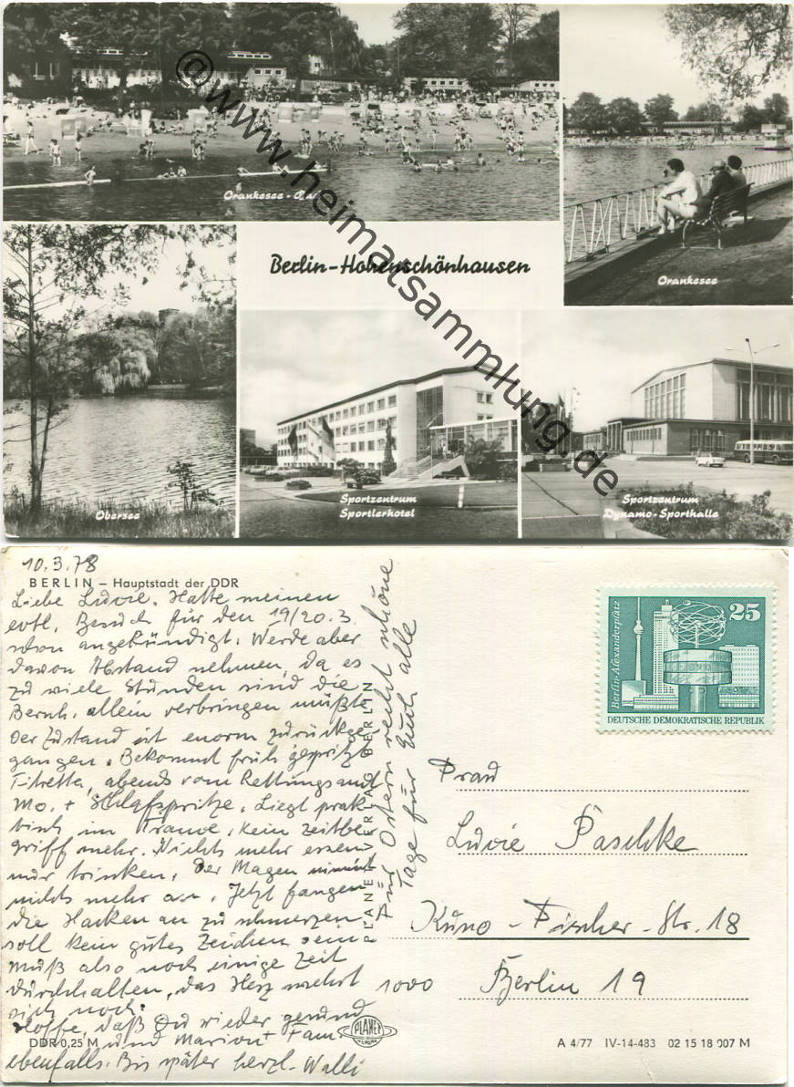 Orankesee - Bad
Orankesee
Berlin-Hohenschönhausen
Obersee
Sportzentrum
Sportlerhotel
Sportzentrum
Dynamo-Sporthalle
@www.heimatsammlung.de
10.3.78
BERLIN – Hauptstadt der DDR
Liebe Luzie. Hatte meinen
evtl. Besuch für den 19/20.3.
schon angekündigt. Werde aber
davon Abstand nehmen, da es
zu viele Stunden sind die
Bernh. allein verbringen müßte
Der Zustand ist enorm zurückge
gangen. Bekommt früh gespritzt
abends vom Rettungsamt
Mo. + Schlafspritze. Liegt prak
tisch im Trance, kein Zeitbe
griff mehr. Nichts mehr essen
nur trinken. Der Magen nimmt
nichts mehr an. Jetzt fangen
die Hacken an zu schmerzen
soll kein gutes Zeichen sein
Muß also noch einige Zeit
durchhalten, das Herz wehrt
sich noch.
Hoffe, daß Du wieder gesund
und Marion + Fam.
ebenfalls. Bis später herzl. Walli
Für Ostern recht schöne
Tage für Euch alle
PLANET-VERLAG BERLIN
25
Berlin-Alexanderplatz
DEUTSCHE DEMOKRATISCHE REPUBLIK
Frau
Luzie Paschke
Kuno-Fischer-Str. 18
1000 Berlin 19
DDR 0,25 M
PLANET
VERLAG
A 4/77 IV-14-483 02 15 18 007 M